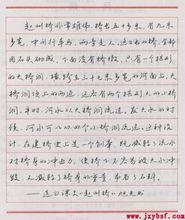 赵州桥非常雄伟。桥长五十多米，有九米
多宽，中间行车马，两旁走人。这么长的桥，全部
用石头砌成，下面没有桥墩，只有一个拱形
的大桥洞，横跨在三十七米多宽的河面上。大
桥洞顶上的两边，还各有两个拱形的小桥
洞。平时，河水从大桥洞流过，发大水的时
候，河水还可以从四个小桥洞流过。这种设计
在建桥史上是一个创举，既减轻了流水
对桥身的冲击力，使桥不容易被大水冲
毁，又减轻了桥身的重量，节省了石料。
www.jzybsf.com